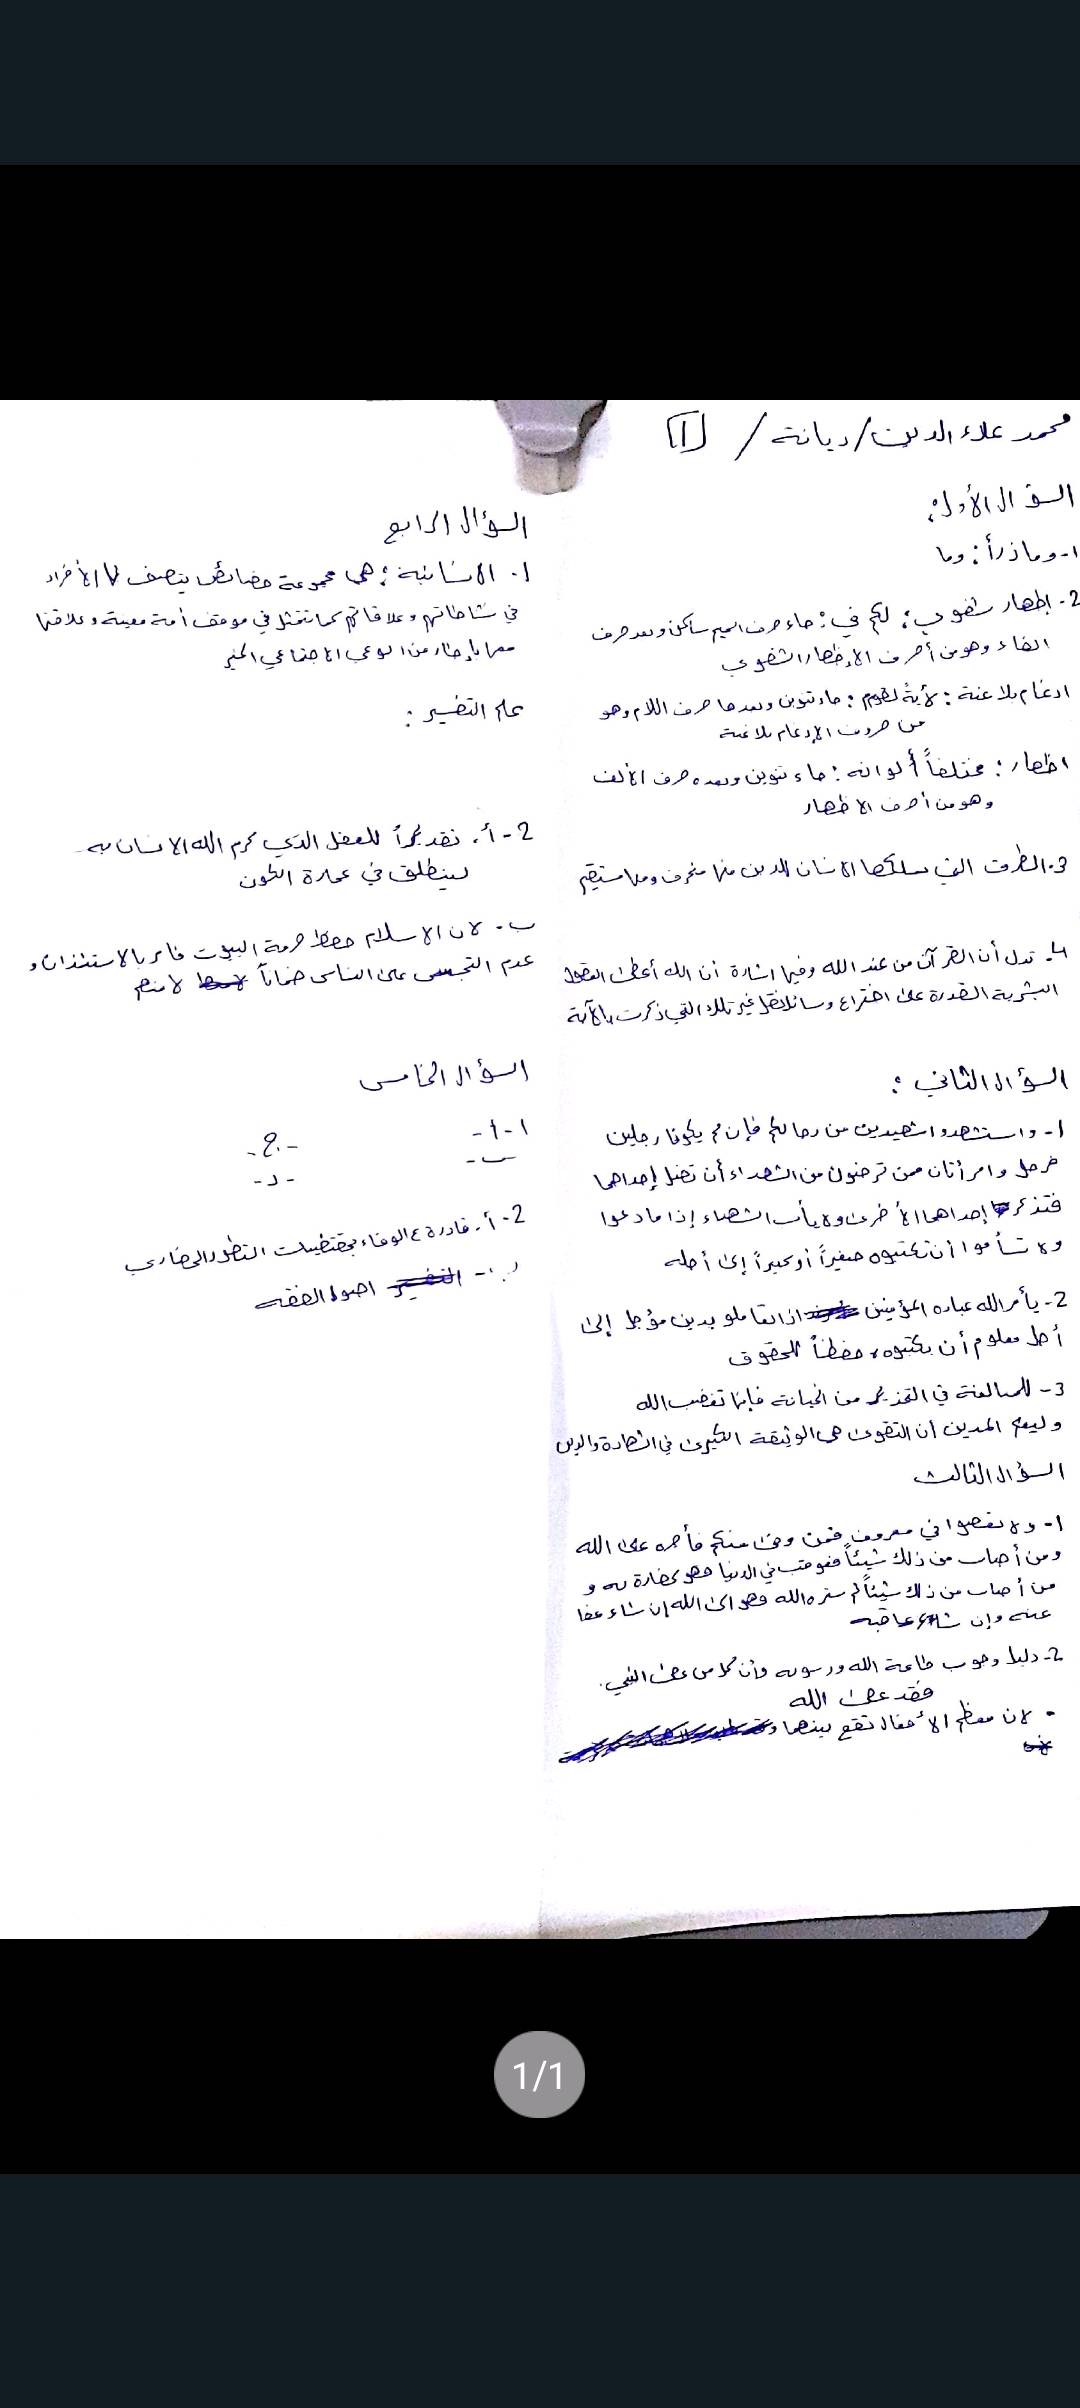 محمد علاء الدين / ديانة / [1]
السؤال الأول:
1- وما ذرأ: وما
2- إظهار شفوي: لكم في: جاء حرف الميم ساكن وبعد حرف
الفاء وهو من أحرف الإظهار الشفوي
ادغام بلا غنة: لآيةً لقوم: جاء تنوين وبعدها حرف اللام وهو
من حروف الإدغام بلا غنة
اظهار: مختلفاً ألوانه: جاء تنوين وبعده حرف الألف
وهو من أحرف الاظهار
3. الطرق التي يسلكها الانسان للدين منها منحرف ومنها مستقيم
4. تدل أن القرآن من عند الله وفيها اشارة أن الله أعطى العقول
البشرية القدرة على اختراع وسائل نقل غير تلك التي ذكرت بالآية
السؤال الثاني:
1- واستشهدوا شهيدين من رجالكم فإن لم يكونا رجلين
فرجل وامرأتان ممن ترضون من الشهداء أن تضل إحداهما
فتذكر إحداهما الأخرى ولا يأب الشهداء إذا ما دعوا
ولا تسأموا أن تكتبوه صغيراً أو كبيراً إلى أجله
2- يأمر الله عباده المؤمنين اذا تعاملو بدين مؤجل إلى
أجل معلوم أن يكتبوه، حفظاً للحقوق
3- للمبالغة في التحذير من الخيانة فإنها تغضب الله
وليعلم المدين أن التقوى هي الوثيقة الكبرى في الشهادة والدين
السؤال الثالث
1- ولا تعصوا في معروف فمن وفى منكم فأجره على الله
ومن أصاب من ذلك شيئاً فعوقب في الدنيا فهو كفارة له و
من أصاب من ذلك شيئاً ثم ستره الله فهو الى الله إن شاء عفا
عنه وإن شاء عاقبه
2- دليل وجوب طاعة الله ورسوله وأن كل من عصى النبي
فقد عصى الله
• لان معظم الأفعال تقع بينهما
السؤال الرابع
1. الانسانية: هي مجموعة خصائص يتصف بها الأفراد
في نشاطاتهم وعلاقاتهم كما تتمثل في موقف أمة معينة وعلاقتها
معها بإطار من الوعي الاجتماعي الخير
علم التفسير:
2- أ. تقديراً للعقل الذي كرم الله الانسان به
لينطلق في عمارة الكون
ب. لان الاسلام حفظ حرمة البيوت فأمر بالاستئذان و
عدم التجسس على الناس ضماناً لامنهم
السؤال الخامس
1- أ-
ب-
ج-
د-
2- أ. قادرة ع الوفاء بمقتضيات التطور الحضاري
ب- اصول الفقه
1/1